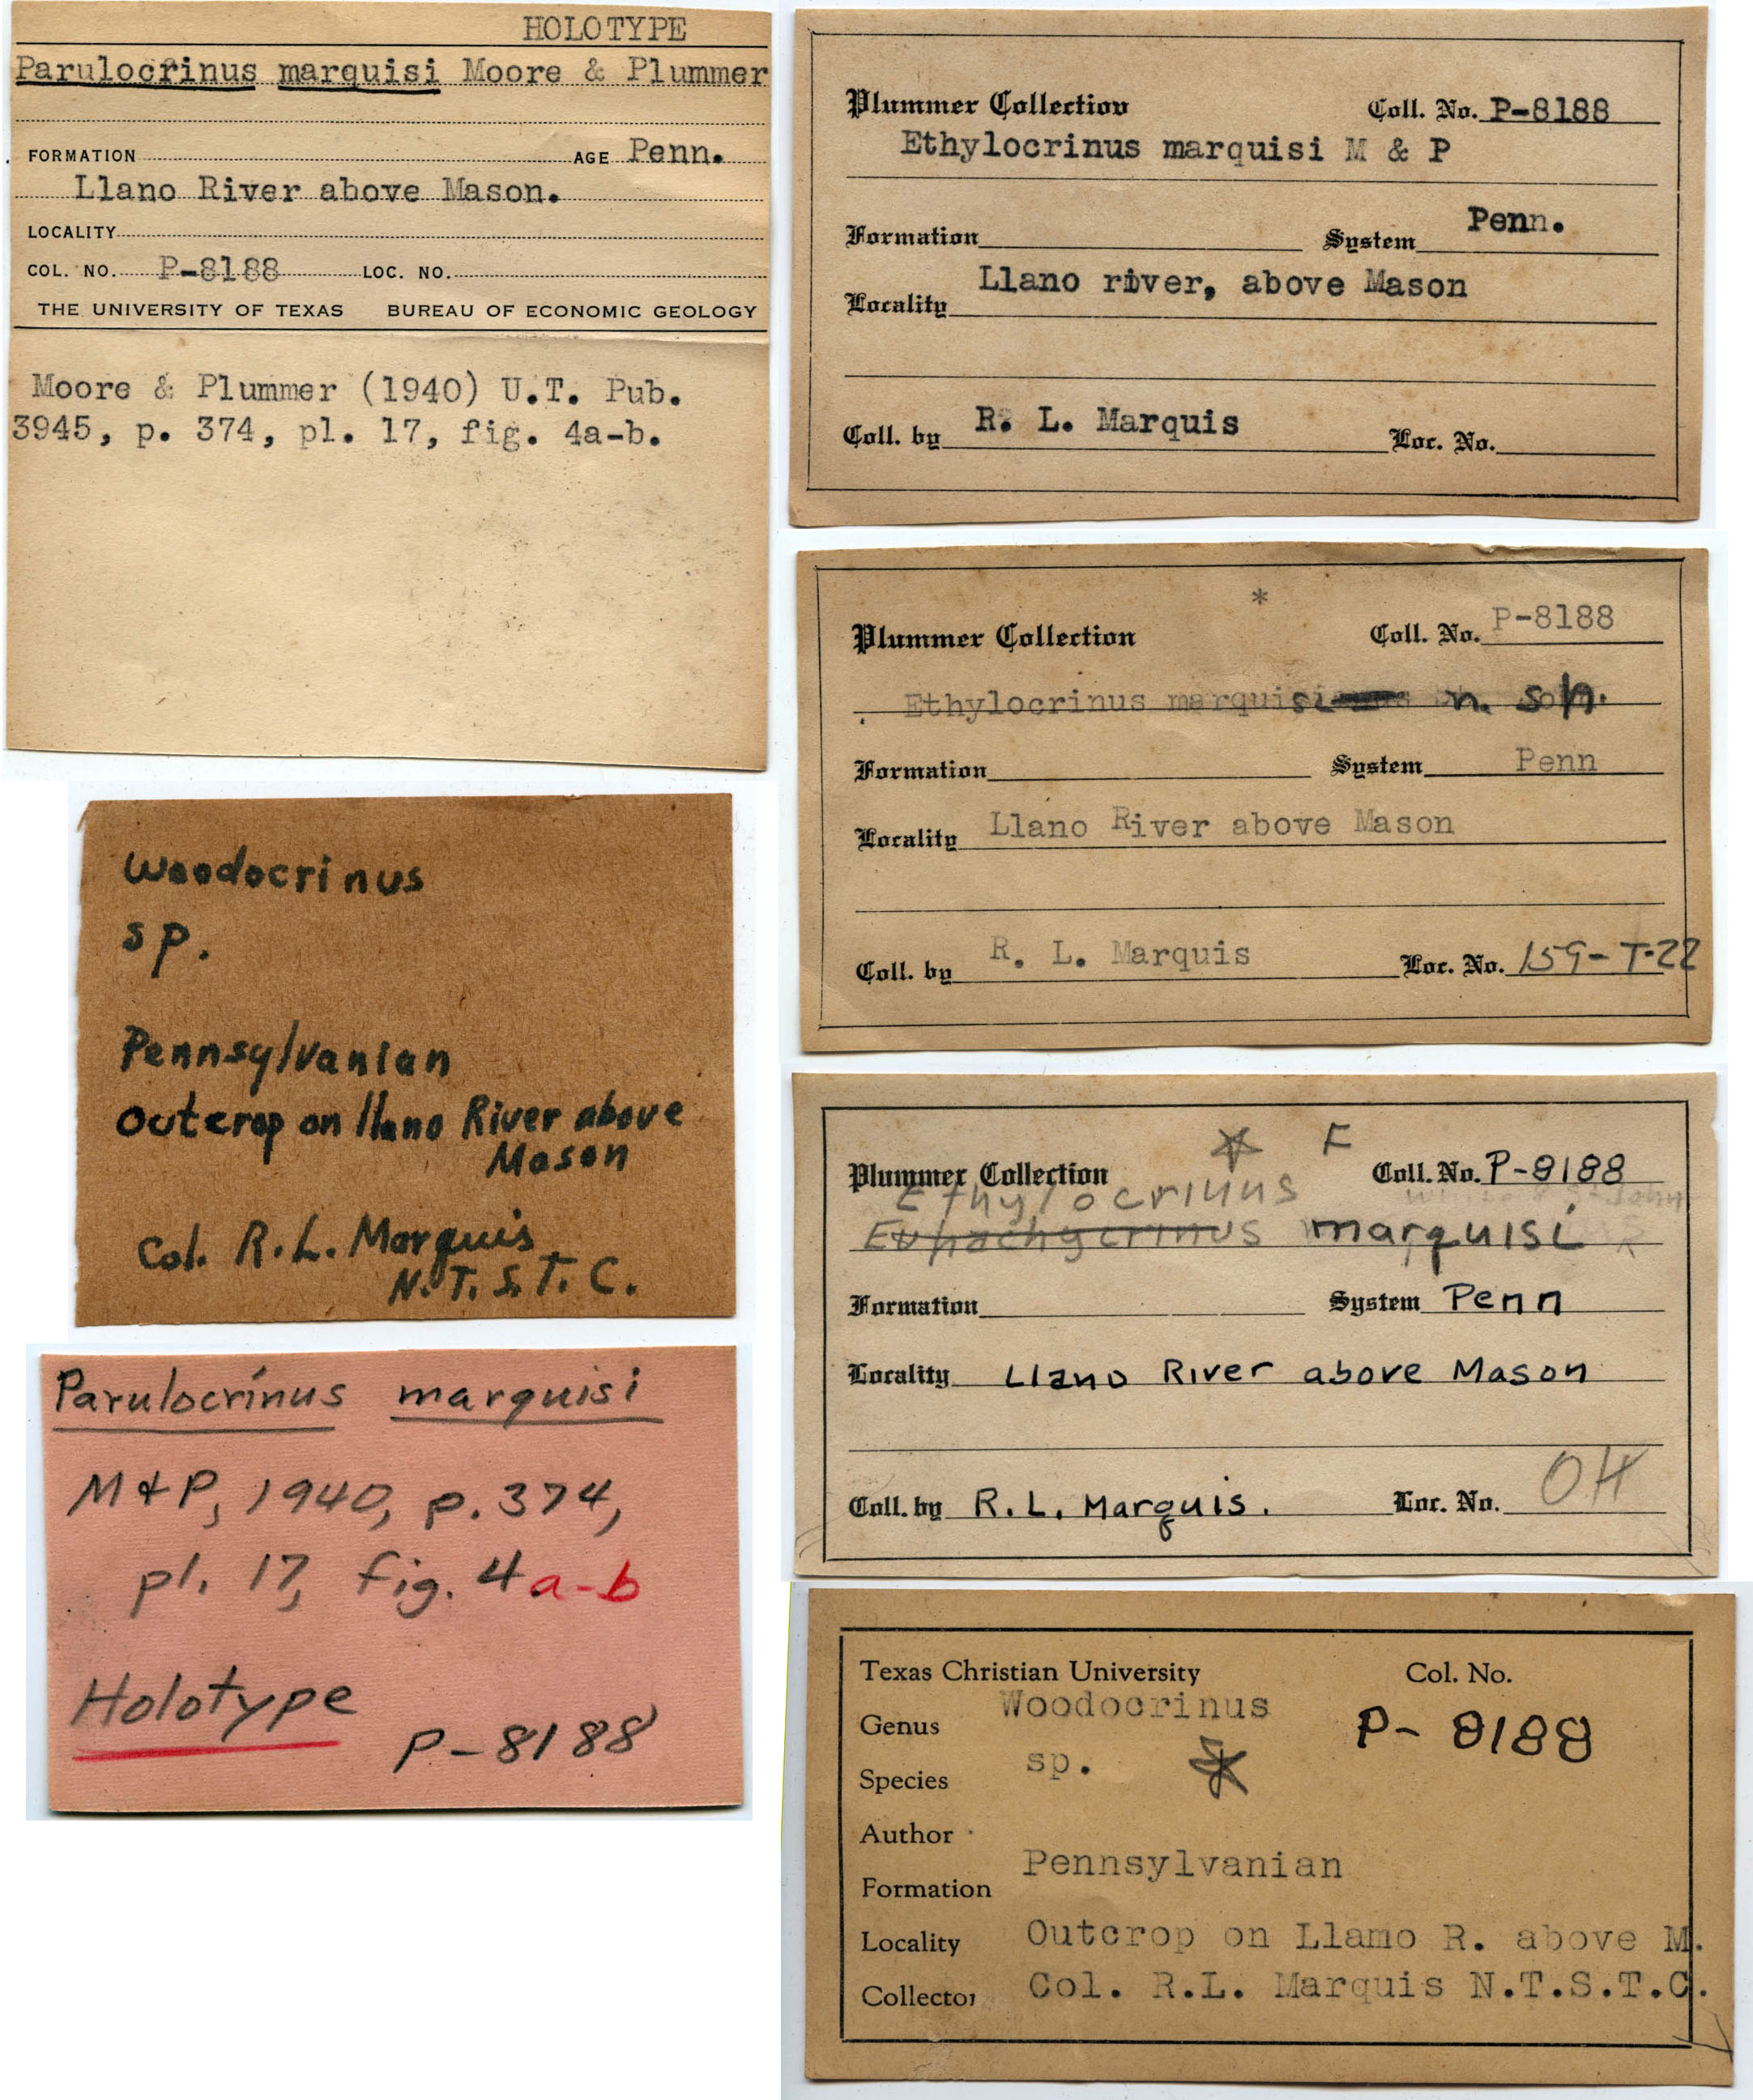 HOLOTYPE
Parulocrinus marquisi Moore & Plummer
FORMATION AGE Penn.
Llano River above Mason.
LOCALITY
COL. NO. P-8188 LOC. NO.
THE UNIVERSITY OF TEXAS BUREAU OF ECONOMIC GEOLOGY
Moore & Plummer (1940) U.T. Pub.
3945, p. 374, pl. 17, fig. 4a-b.
Woodocrinus
sp.
Pennsylvanian
Outcrop on llano River above
Mason
Col. R.L. Marquis
N.T.S.T.C.
Parulocrinus marquisi
M & P, 1940, p. 374,
pl. 17, fig. 4 a-b
Holotype
P-8188
Plummer Collection Coll. No. P-8188
Ethylocrinus marquisi M & P
Formation System Penn.
Llano river, above Mason
Locality
Coll. by R. L. Marquis Loc. No.
*
Plummer Collection Coll. No. P-8188
Ethylocrinus marquisi n. sp.
Formation System Penn
Locality Llano River above Mason
Coll. by R. L. Marquis Loc. No. 159-T-22
F
Plummer Collection Coll. No. P-8188
Ethylocrinus
Eupachycrinus marquisi
Formation System Penn
Locality Llano River above Mason
OH
Coll. by R.L. Marquis. Loc. No.
Texas Christian University Col. No.
Genus Woodocrinus P-8188
Species sp.
Author
Formation Pennsylvanian
Locality Outcrop on Llamo R. above M.
Collector Col. R.L. Marquis N.T.S.T.C.